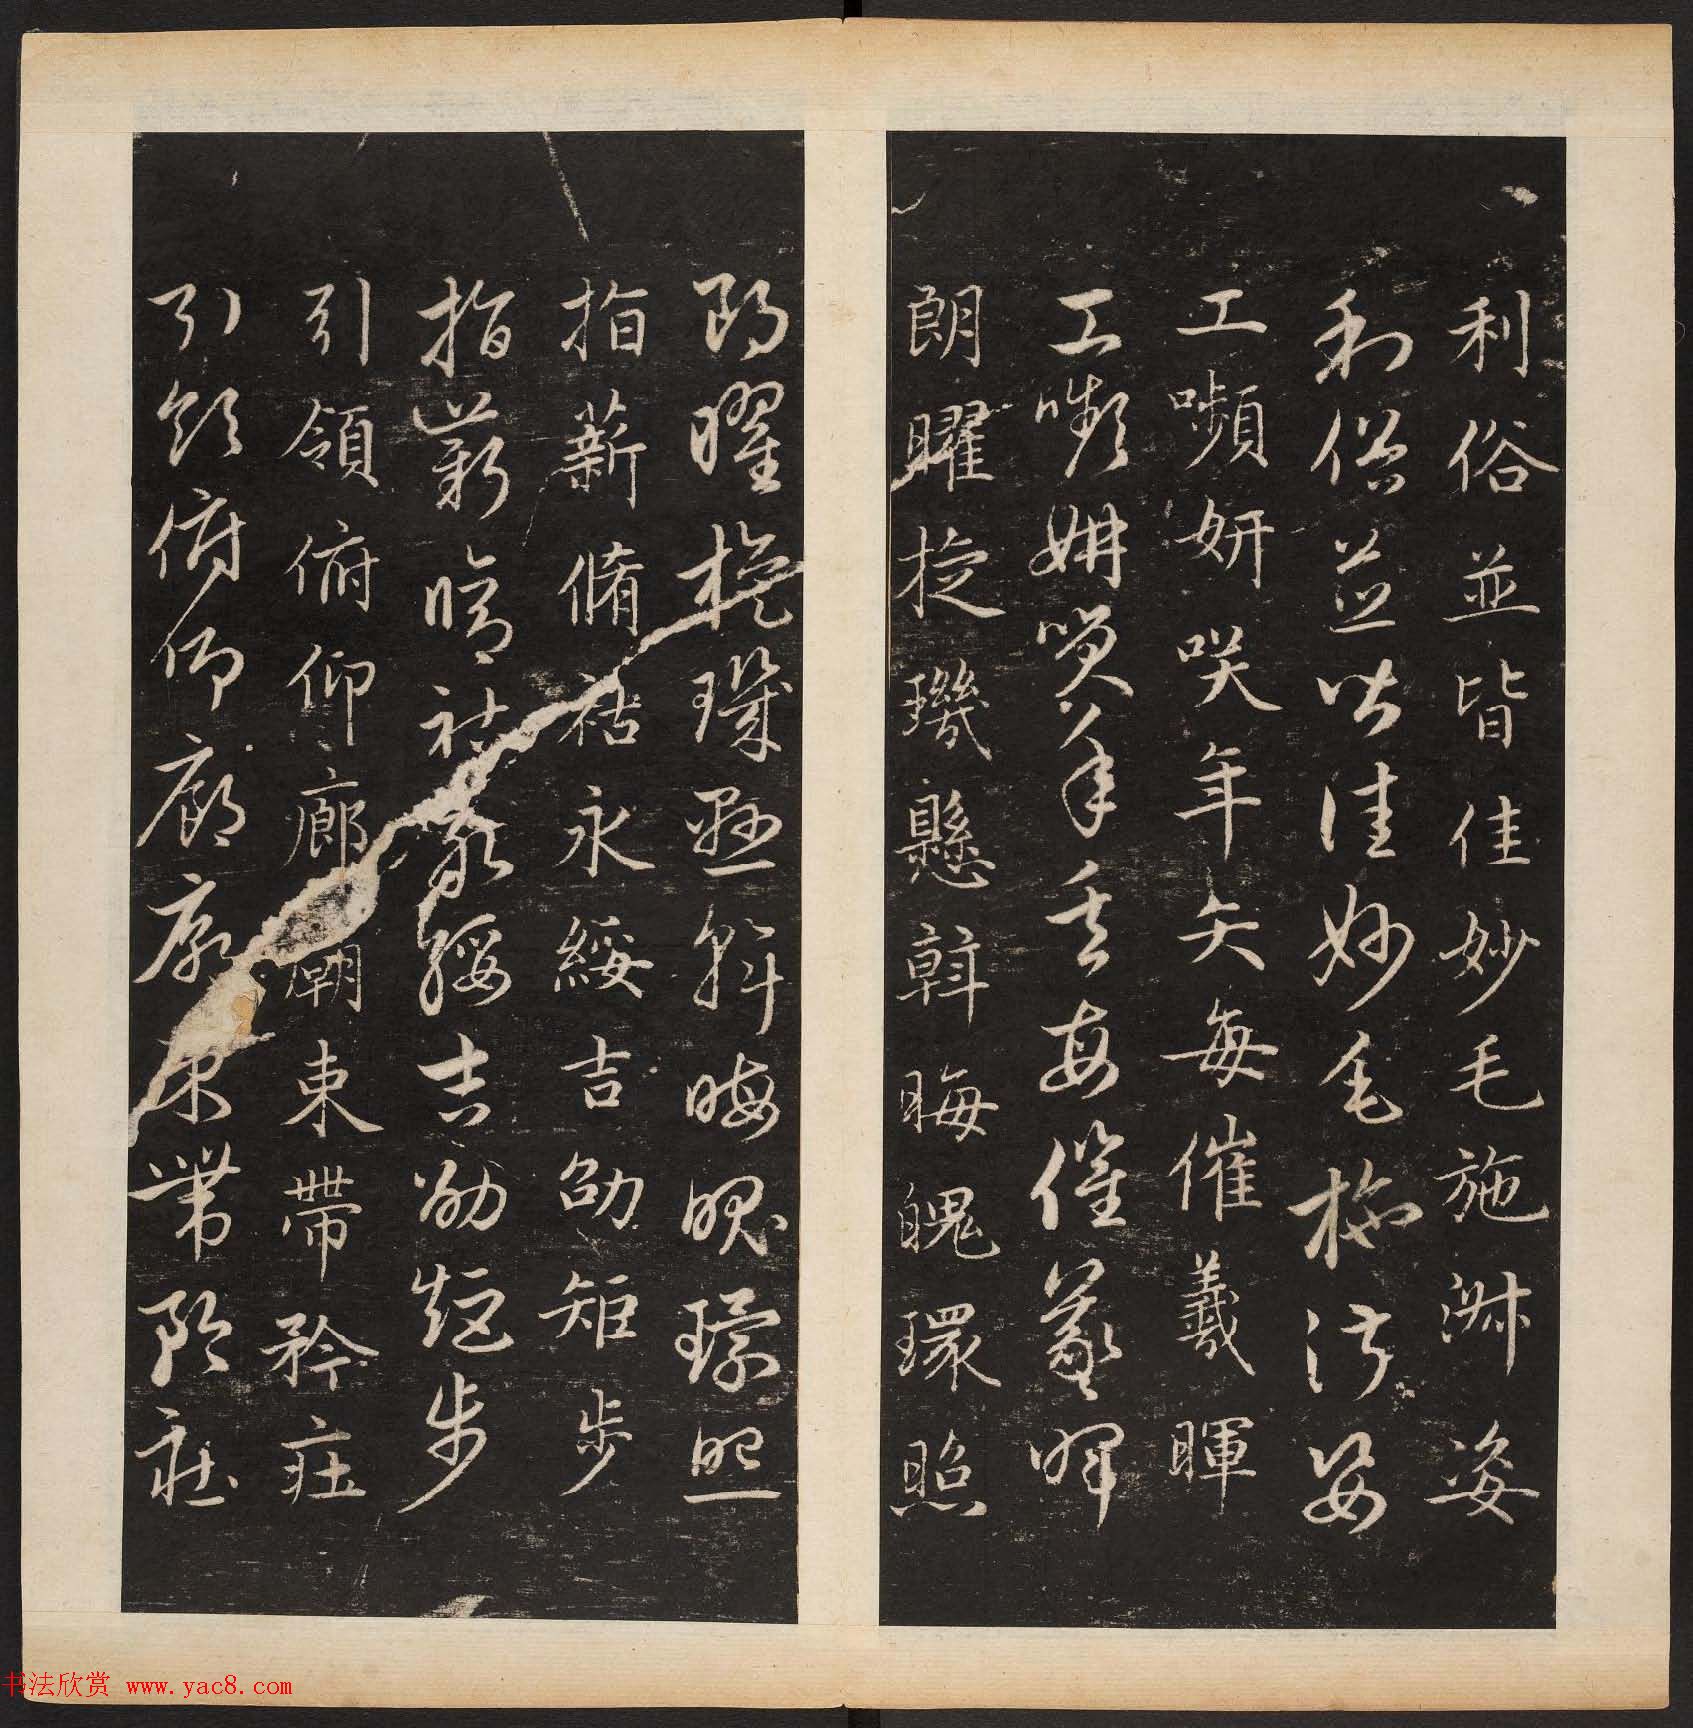 利俗並皆佳妙毛施淑姿
利俗並皆佳妙毛施淑姿
工嚬妍咲年矢每催羲暉
工嚬妍笑年矢每催羲暉
朗曜捉璣懸斡晦魄環照
朗曜捉璣懸斡晦魄環照
指薪脩祜永綏吉劭矩步
指薪脩祜永綏吉劭矩步
引領俯仰廊廟束帶矜莊
引領俯仰廊廟束帶矜莊
书法欣赏 www.yac8.com